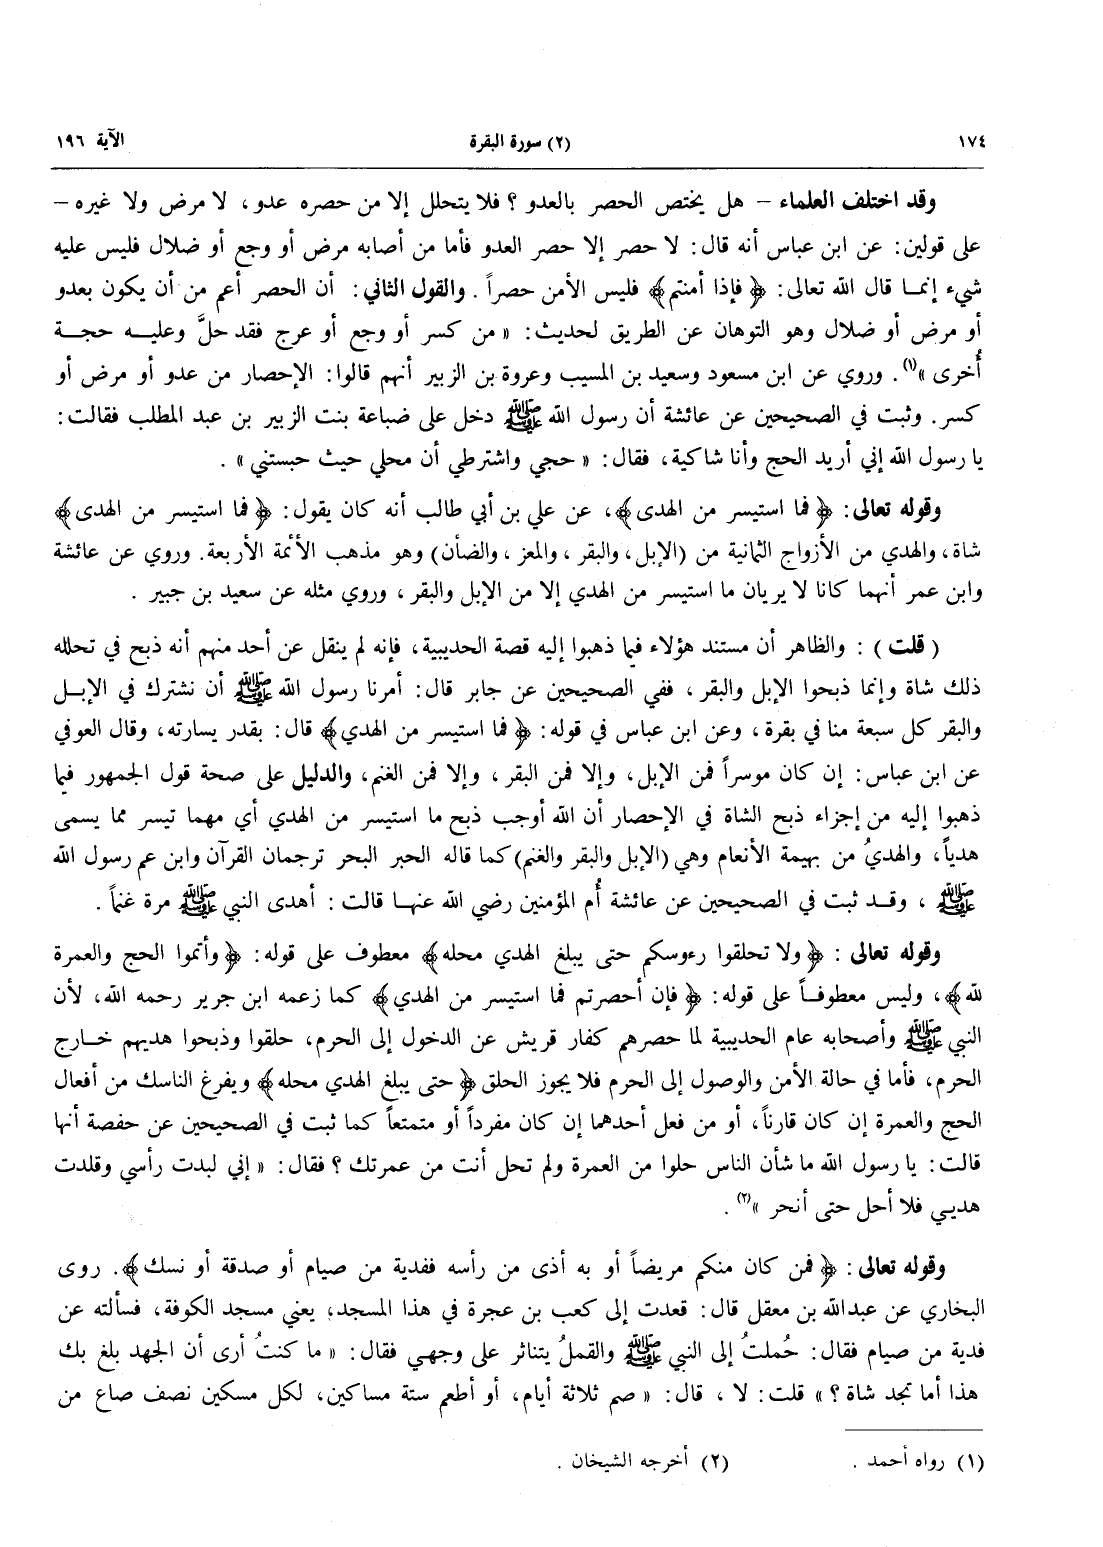 ١٧٤ (٢) سورة البقرة الآية ١٩٦
وقد اختلف العلماء – هل يختص الحصر بالعدو ؟ فلا يتحلل إلا من حصره عدو، لا مرض ولا غيره –
على قولين: عن ابن عباس أنه قال: لا حصر إلا حصر العدو فأما من أصابه مرض أو وجع أو ضلال فليس عليه
شيء إنمـا قال الله تعالى: ﴿ فإذا أمنتم﴾ فليس الأمن حصراً . والقول الثاني: أن الحصر أعم من أن يكون بعدو
أو مرض أو ضلال وهو التوهان عن الطريق لحديث: « من كسر أو وجع أو عرج فقد حلَّ وعليـه حجـة
أُخرى »(١). وروي عن ابن مسعود وسعيد بن المسيب وعروة بن الزبير أنهم قالوا: الإحصار من عدو أو مرض أو
كسر. وثبت في الصحيحين عن عائشة أن رسول الله ﷺ دخل على ضباعة بنت الزبير بن عبد المطلب فقالت:
يا رسول الله إني أريد الحج وأنا شاكية، فقال: « حجي واشترطي أن محلي حيث حبستني » .
وقوله تعالى: ﴿ فما استيسر من الهدى﴾، عن علي بن أبي طالب أنه كان يقول: ﴿ فما استيسر من الهدى﴾
شاة، والهدي من الأزواج الثمانية من (الإبل، والبقر ، والمعز ، والضأن) وهو مذهب الأئمة الأربعة. وروي عن عائشة
وابن عمر أنهما كانا لا يريان ما استيسر من الهدي إلا من الإبل والبقر ، وروي مثله عن سعيد بن جبير .
( قلت ) : والظاهر أن مستند هؤلاء فيما ذهبوا إليه قصة الحديبية، فإنه لم ينقل عن أحد منهم أنه ذبح في تحلله
ذلك شاة وإنما ذبحوا الإبل والبقر ، ففي الصحيحين عن جابر قال: أمرنا رسول الله ﷺ أن نشترك في الإبـل
والبقر كل سبعة منا في بقرة ، وعن ابن عباس في قوله: ﴿ فما استيسر من الهدي﴾ قال: بقدر يسارته، وقال العوفي
عن ابن عباس: إن كان موسراً فمن الإبل، وإلا فمن البقر ، وإلا فمن الغنم، والدليل على صحة قول الجمهور فيما
ذهبوا إليه من إجزاء ذبح الشاة في الإحصار أن الله أوجب ذبح ما استيسر من الهدي أي مهما تيسر مما يسمى
هدياً، والهديُ من بهيمة الأنعام وهي (الإبل والبقر والغنم) كما قاله الحبر البحر ترجمان القرآن وابن عم رسول الله
ﷺ ، وقـد ثبت في الصحيحين عن عائشة أُم المؤمنين رضي الله عنهـا قالت : أهدى النبي ﷺ مرة غنماً .
وقوله تعالى : ﴿ ولا تحلقوا رءوسكم حتى يبلغ الهدي محله﴾ معطوف على قوله: ﴿ وأتموا الحج والعمرة
لله﴾، وليس معطوفـاً على قوله: ﴿ فإن أحصرتم فما استيسر من الهدي﴾ كما زعمه ابن جرير رحمه الله، لأن
النبي ﷺ وأصحابه عام الحديبية لما حصرهم كفار قريش عن الدخول إلى الحرم، حلقوا وذبحوا هديهم خـارج
الحرم، فأما في حالة الأمن والوصول إلى الحرم فلا يجوز الحلق ﴿ حتى يبلغ الهدي محله﴾ ويفرغ الناسك من أفعال
الحج والعمرة إن كان قارناً، أو من فعل أحدهما إن كان مفرداً أو متمتعاً كما ثبت في الصحيحين عن حفصة أنها
قالت: يا رسول الله ما شأن الناس حلوا من العمرة ولم تحل أنت من عمرتك ؟ فقال: « إني لبدت رأسي وقلدت
هديـي فلا أحل حتى أنحر »(٢) .
وقوله تعالى: ﴿ فمن كان منكم مريضاً أو به أذى من رأسه ففدية من صيام أو صدقة أو نسك﴾. روى
البخاري عن عبدالله بن معقل قال: قعدت إلى كعب بن عجرة في هذا المسجد، يعني مسجد الكوفة، فسألته عن
فدية من صيام فقال: حُملتُ إلى النبي ﷺ والقملُ يتناثر على وجهي فقال: « ما كنتُ أرى أن الجهد بلغ بك
هذا أما تجد شاة ؟ » قلت: لا ، قال: « صم ثلاثة أيام، أو أطعم ستة مساكين، لكل مسكين نصف صاع من
(١) رواه أحمد . (٢) أخرجه الشيخان .